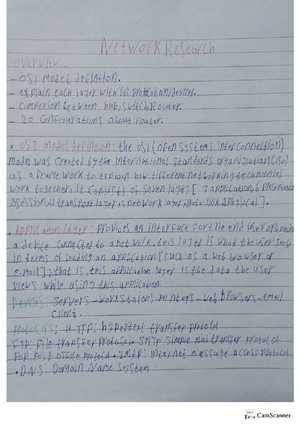 Network Research
overview:
- OSI model definition.
- explain each layer with its protocol and devices.
- comperson between hub, switch, router.
- 20 configurations about router.
• OSI model definision: the OSI (open systems interconnection)
Model was created by the international standards organization (ISO)
as a frame work to explain how different networking technologies
work together. It consists of seven layers [ 7 application, 6 presentation
5 session, 4 transport layer, network layer, data link, physical ].
• Application Layer: Provides an interface for the end user operating
a device connected to a network. this layer is what the user sees
in terms of loading an application [such as a web browser or
e-mail]; that is, this application layer is the data the user
views while using this application.
Devices: Servers - workstations - printers - web browsers - email
client.
Protocols: HTTP: hypertext transfer protocol
FTP: File transfer protocol • SMTP: simple mail transfer protocol
POP: Post office protocol • IMAP: internet message access protocol
• DNS: Domain Name System
CS CamScanner